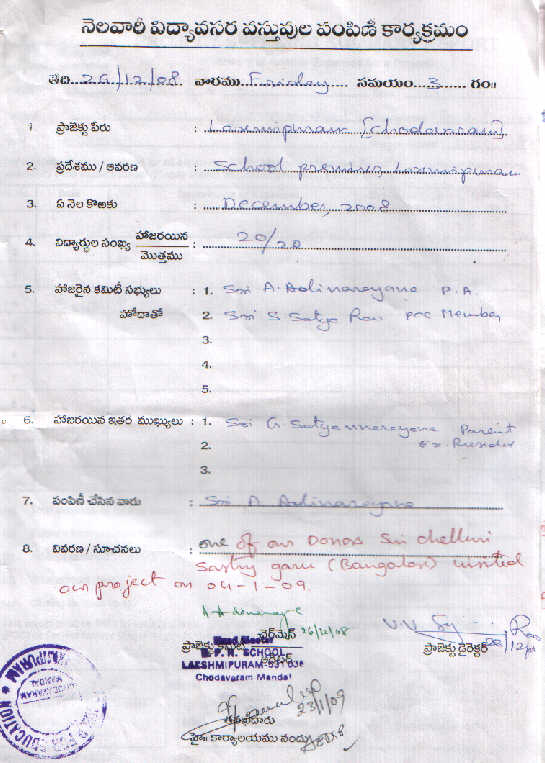 నెలవారీ విద్యావసర వస్తువుల పంపిణీ కార్యక్రమం
తేది 26/12/08 వారము Friday సమయం 3 గం॥
1 ప్రాజెక్టు పేరు : Laxmipuram (Chodavaram)
2. ప్రదేశము / ఆవరణ : School premises, Laxmipuram
3. ఏ నెల కొఱకు : December, 2008
4. విద్యార్థుల సంఖ్య హాజరయిన / మొత్తము : 20/20
5. హాజరైన కమిటీ సభ్యులు : 1. Sri A. Adinarayana P.A.
హోదాతో 2. Sri S Satya Rao PRC Member
3.
4.
5.
6. హాజరయిన ఇతర ముఖ్యులు : 1. Sri G. Satyannarayana Parent
2.
3.
7. పంపిణీ చేసిన వారు : Sri A Adinarayana
8. వివరణ / సూచనలు : one of our Donors Sri chelluri
Sastry garu (Bangalore) visited
our project on 04-1-09.
26/12/08
ప్రాజెక్టు చైర్మెన్
Head Master
M. P. P. SCHOOL
LAKSHMIPURAM
Chodavaram Mandal
ప్రాజెక్టు డైరెక్టర్
23/1/09
కార్యాలయము నందు